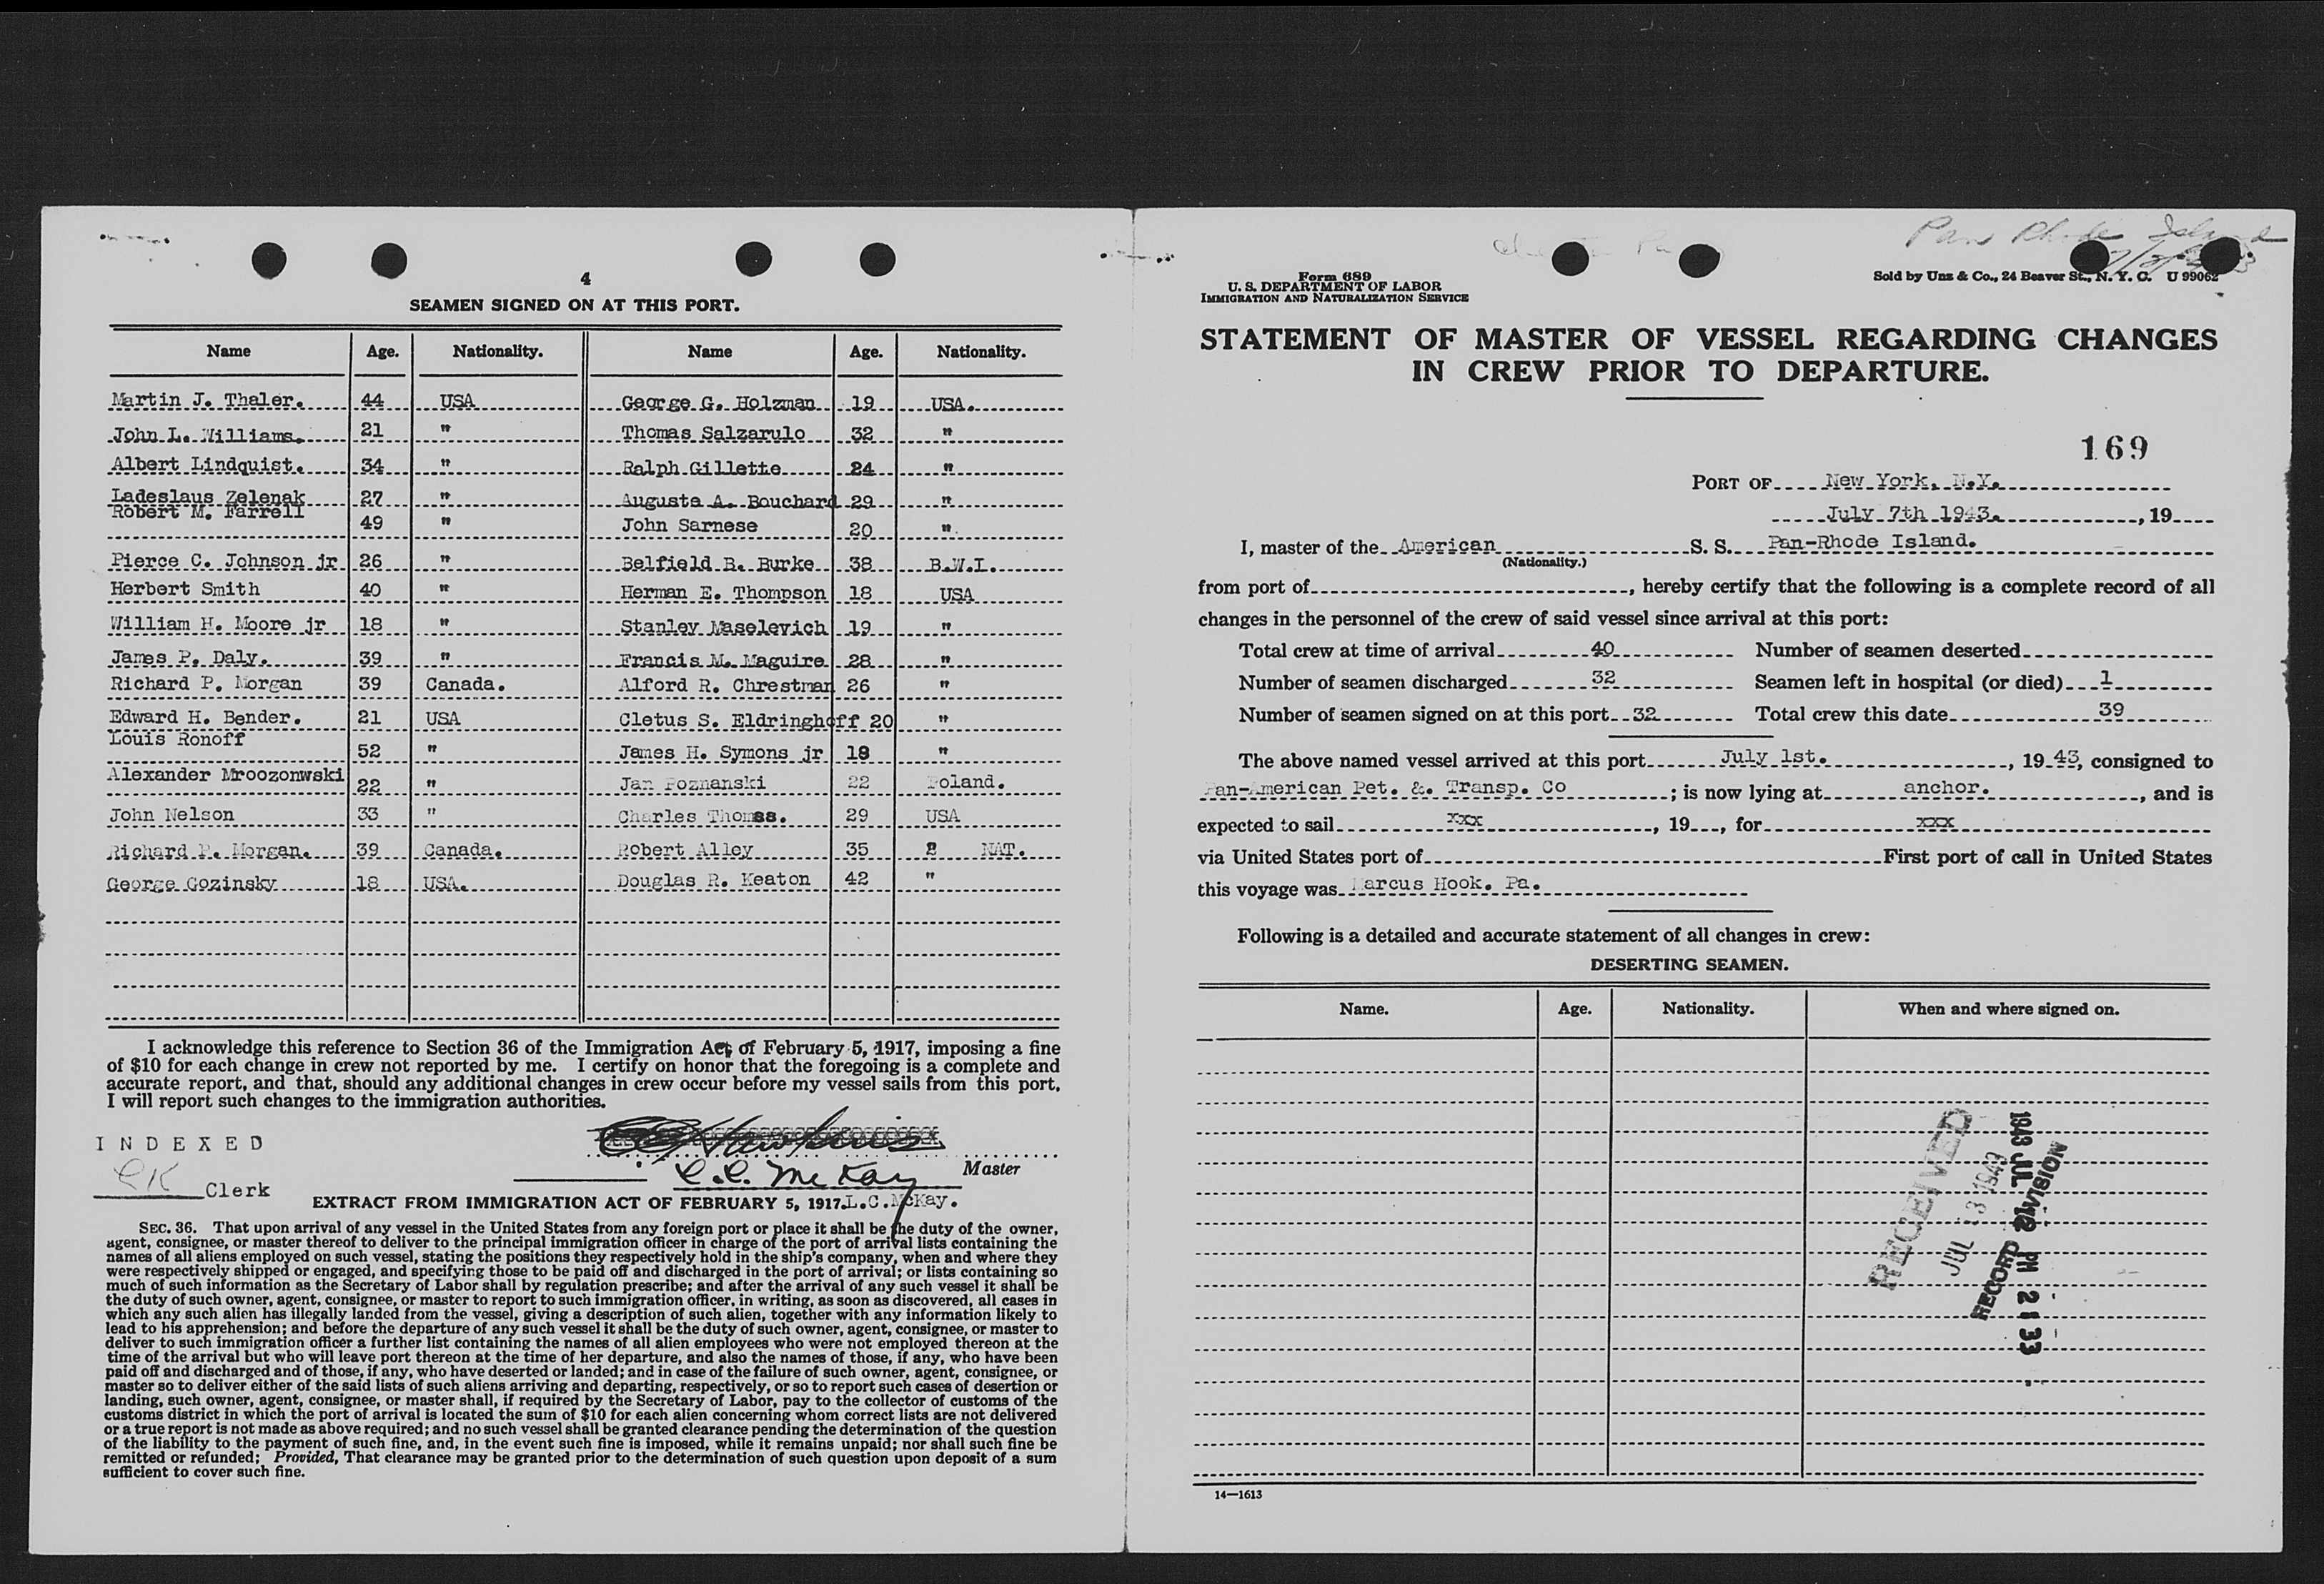 4
SEAMEN SIGNED ON AT THIS PORT.
Name Age. Nationality. Name Age. Nationality.
Martin J. Thaler. 44 USA George G. Holzman 19 USA.
John L. Williams. 21 " Thomas Salzarulo 32 "
Albert Lindquist. 34 " Ralph Gillette 24 "
Ladeslaus Zelenak 27 " Augusta A. Bouchard 29 "
Robert M. Farrell 49 " John Sarnese 20 "
Pierce C. Johnson jr 26 " Belfield B. Burke 38 B.W.I.
Herbert Smith 40 " Herman E. Thompson 18 USA
William H. Moore jr 18 " Stanley Maselevich 19 "
James P. Daly. 39 " Francis M. Maguire 28 "
Richard P. Morgan 39 Canada. Alford R. Chrestman 26 "
Edward H. Bender. 21 USA Cletus S. Eldringhoff 20 "
Louis Ronoff 52 " James H. Symons jr 18 "
Alexander Mroozonwski 22 " Jan Poznanski 22 Poland.
John Nelson 33 " Charles Thomas. 29 USA
Richard P. Morgan. 39 Canada. Robert Alley 35 " NAT.
George Gozinsky 18 USA. Douglas R. Keaton 42 "
I acknowledge this reference to Section 36 of the Immigration Act of February 5, 1917, imposing a fine
of $10 for each change in crew not reported by me. I certify on honor that the foregoing is a complete and
accurate report, and that, should any additional changes in crew occur before my vessel sails from this port,
I will report such changes to the immigration authorities.
INDEXED
CK Clerk
L.C. McKay Master
EXTRACT FROM IMMIGRATION ACT OF FEBRUARY 5, 1917. L.C. McKay.
SEC. 36. That upon arrival of any vessel in the United States from any foreign port or place it shall be the duty of the owner,
agent, consignee, or master thereof to deliver to the principal immigration officer in charge of the port of arrival lists containing the
names of all aliens employed on such vessel, stating the positions they respectively hold in the ship's company, when and where they
were respectively shipped or engaged, and specifying those to be paid off and discharged in the port of arrival; or lists containing so
much of such information as the Secretary of Labor shall by regulation prescribe; and after the arrival of any such vessel it shall be
the duty of such owner, agent, consignee, or master to report to such immigration officer, in writing, as soon as discovered, all cases in
which any such alien has illegally landed from the vessel, giving a description of such alien, together with any information likely to
lead to his apprehension; and before the departure of any such vessel it shall be the duty of such owner, agent, consignee, or master to
deliver to such immigration officer a further list containing the names of all alien employees who were not employed thereon at the
time of the arrival but who will leave port thereon at the time of her departure, and also the names of those, if any, who have been
paid off and discharged and of those, if any, who have deserted or landed; and in case of the failure of such owner, agent, consignee, or
master so to deliver either of the said lists of such aliens arriving and departing, respectively, or so to report such cases of desertion or
landing, such owner, agent, consignee, or master shall, if required by the Secretary of Labor, pay to the collector of customs of the
customs district in which the port of arrival is located the sum of $10 for each alien concerning whom correct lists are not delivered
or a true report is not made as above required; and no such vessel shall be granted clearance pending the determination of the question
of the liability to the payment of such fine, and, in the event such fine is imposed, while it remains unpaid; nor shall such fine be
remitted or refunded; Provided, That clearance may be granted prior to the determination of such question upon deposit of a sum
sufficient to cover such fine.
Pan Rhode Island
Form 689
U. S. DEPARTMENT OF LABOR
IMMIGRATION AND NATURALIZATION SERVICE
Sold by Unz & Co., 24 Beaver St., N. Y. C. U 99062
STATEMENT OF MASTER OF VESSEL REGARDING CHANGES
IN CREW PRIOR TO DEPARTURE.
169
PORT OF New York, N.Y.
July 7th 1943. , 19
I, master of the American S. S. Pan-Rhode Island.
(Nationality.)
from port of , hereby certify that the following is a complete record of all
changes in the personnel of the crew of said vessel since arrival at this port:
Total crew at time of arrival 40 Number of seamen deserted
Number of seamen discharged 32 Seamen left in hospital (or died) 1
Number of seamen signed on at this port 32 Total crew this date 39
The above named vessel arrived at this port July 1st. , 19 43, consigned to
Pan-American Pet. &. Transp. Co ; is now lying at anchor. , and is
expected to sail xxx , 19 , for xxx
via United States port of First port of call in United States
this voyage was Marcus Hook. Pa.
Following is a detailed and accurate statement of all changes in crew:
DESERTING SEAMEN.
Name. Age. Nationality. When and where signed on.
RECEIVED
JUL 13 1943
RECORD DIVISION
1943 JUL 12 PM 2 33
14—1613